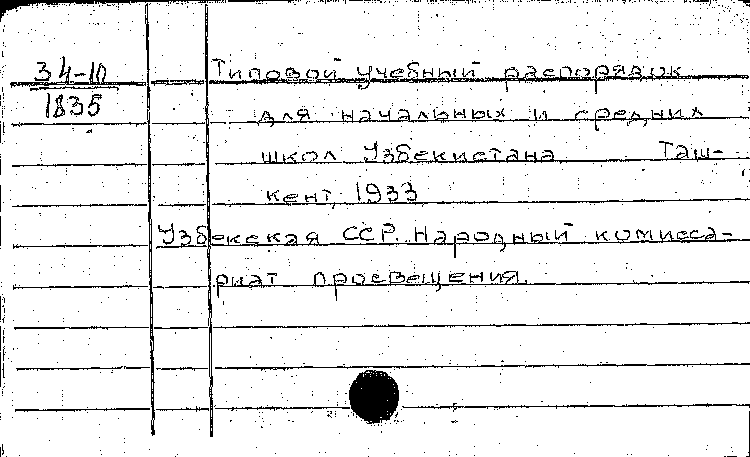 34-10 Типовой учебный распорядок
1835 для начальных и средних
школ Узбекистана. Таш-
кент, 1933
Узбекская ССР. Народный комисса-
риат просвещения.